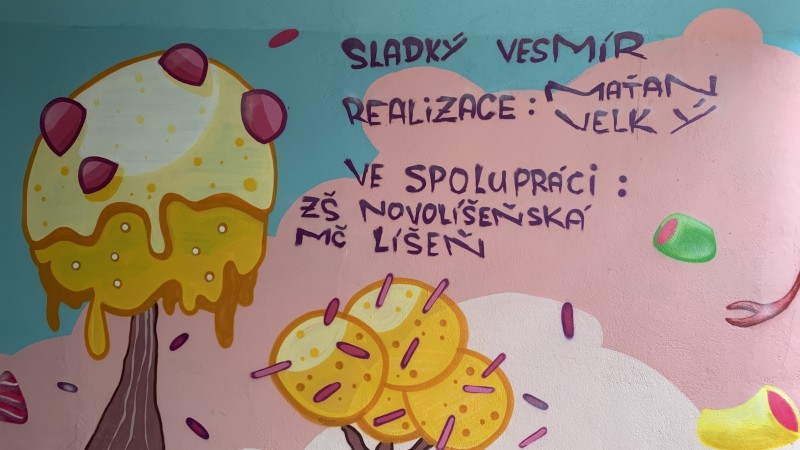 SLADKÝ VESMÍR
REALIZACE: MAŤAN VELKÝ
VE SPOLUPRÁCI:
ZŠ NOVOLÍŠEŇSKÁ
MČ LÍŠEŇ